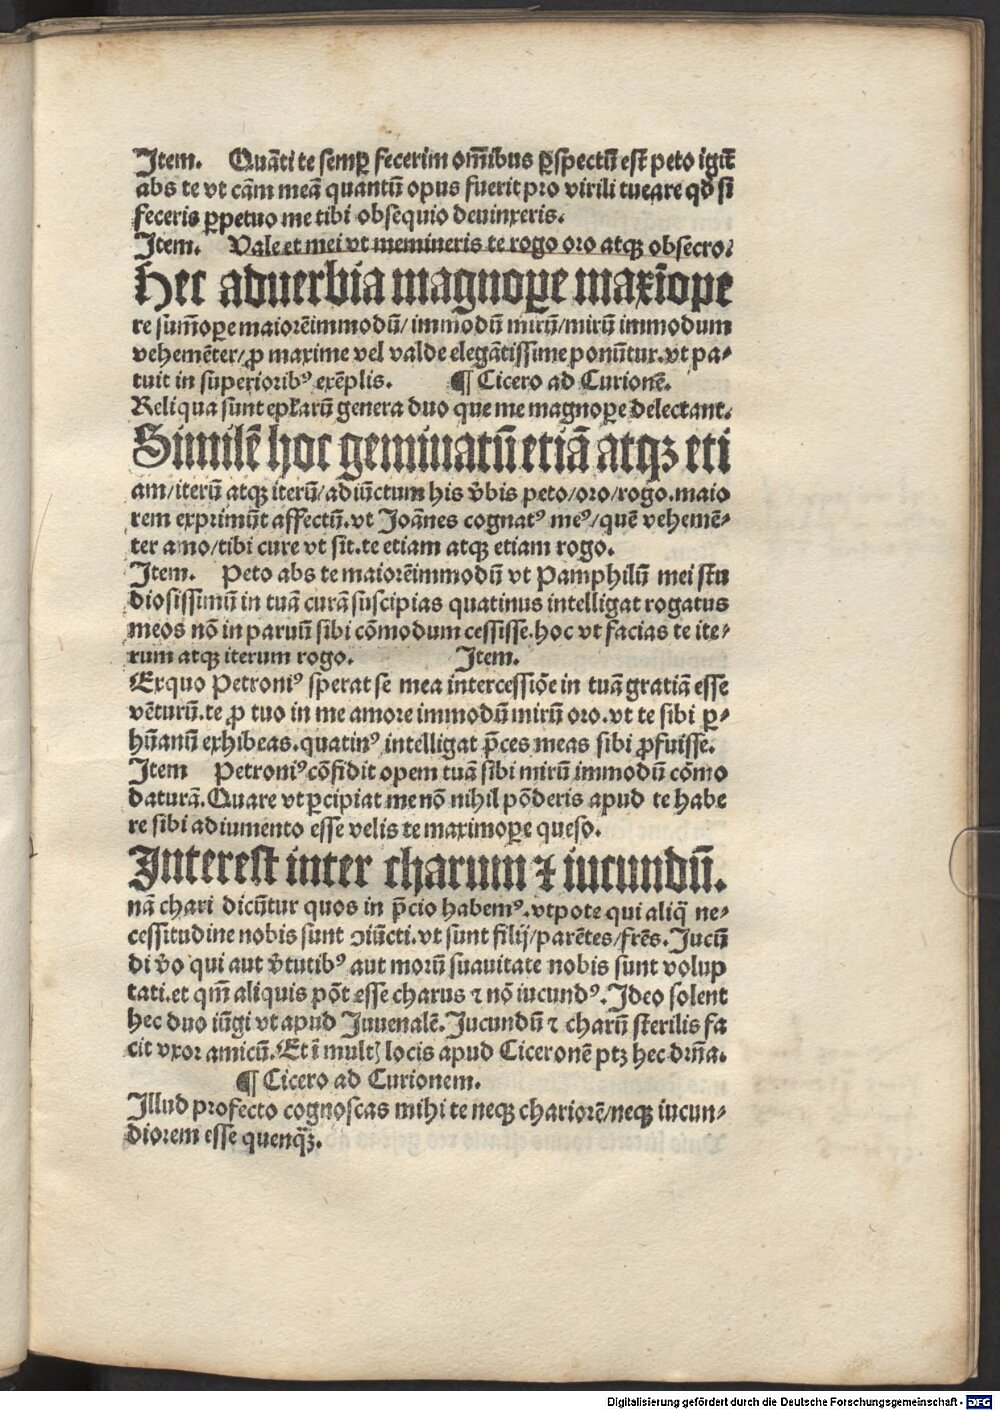 Item. Quāti te semꝑ fecerim om̄ibus ꝑspectū est peto igit̄
abs te vt cām meā quantū opus fuerit pro virili tueare qd̄ si
feceris ꝑpetuo me tibi obsequio deuinxeris.
Item. Vale et mei vt memineris te rogo oro atqꝫ obsecro.
Hec aduerbia magnoꝑe maxīope
re sum̄oꝑe maiorēimmodū/ immodū mirū/mirū immodum
vehemēter/ꝓ maxime vel valde elegātissime ponūtur.vt pa⸗
tuit in superioribꝰ exēplis. ¶ Cicero ad Curionē.
Reliqua sunt epl̄arū genera duo que me magnoꝑe delectant.
Similē hoc geminatū etiā atqꝫ eti
am/iterū atqꝫ iterū/adiūctum his v̄bis peto/oro/rogo.maio
rem exprimūt affectū.vt Joānes cognatꝰ meꝰ/quē vehemē⸗
ter amo/tibi cure vt sit.te etiam atqꝫ etiam rogo.
Item. Peto abs te maiorēimmodū vt Pamphilū mei stu
diosissimū in tuā curā suscipias quatinus intelligat rogatus
meos nō in paruū sibi cōmodum cessisse.hoc vt facias te ite⸗
rum atqꝫ iterum rogo. Item.
Exquo Petroniꝰ sperat se mea intercessiōe in tuā gratiā esse
vēturū.te ꝓ tuo in me amore immodū mirū oro.vt te sibi ꝑ⸗
hūanū exhibeas.quatinꝰ intelligat p̄ces meas sibi ꝓfuisse.
Item Petroniꝰ cōfidit opem tuā sibi mirū immodū cōmo
daturā.Quare vt ꝑcipiat me nō nihil pōderis apud te habe
re sibi adiumento esse velis te maximoꝑe queso.
Interest inter charum ⁊ iucundū.
nā chari dicūtur quos in p̄cio habemꝰ.vtpote qui aliq̄ ne⸗
cessitudine nobis sunt ↄiūcti.vt sunt filij/parētes/frēs.Jucū
di v̄o qui aut v̄tutibꝰ aut morū suauitate nobis sunt volup
tati.et qm̄ aliquis pōt esse charus ⁊ nō iucundꝰ.Ideo solent
hec duo iūgi vt apud Juuenalē.Jucundū ⁊ charū sterilis fa
cit vxor amicū.Et ī multꝭ locis apud Ciceronē ptꝫ hec dr̄na.
¶ Cicero ad Curionem.
Illud profecto cognoscas mihi te neqꝫ chariorē/neqꝫ iucun⸗
diorem esse quenq̄ꝫ.
Digitalisierung gefördert durch die Deutsche Forschungsgemeinschaft - DFG